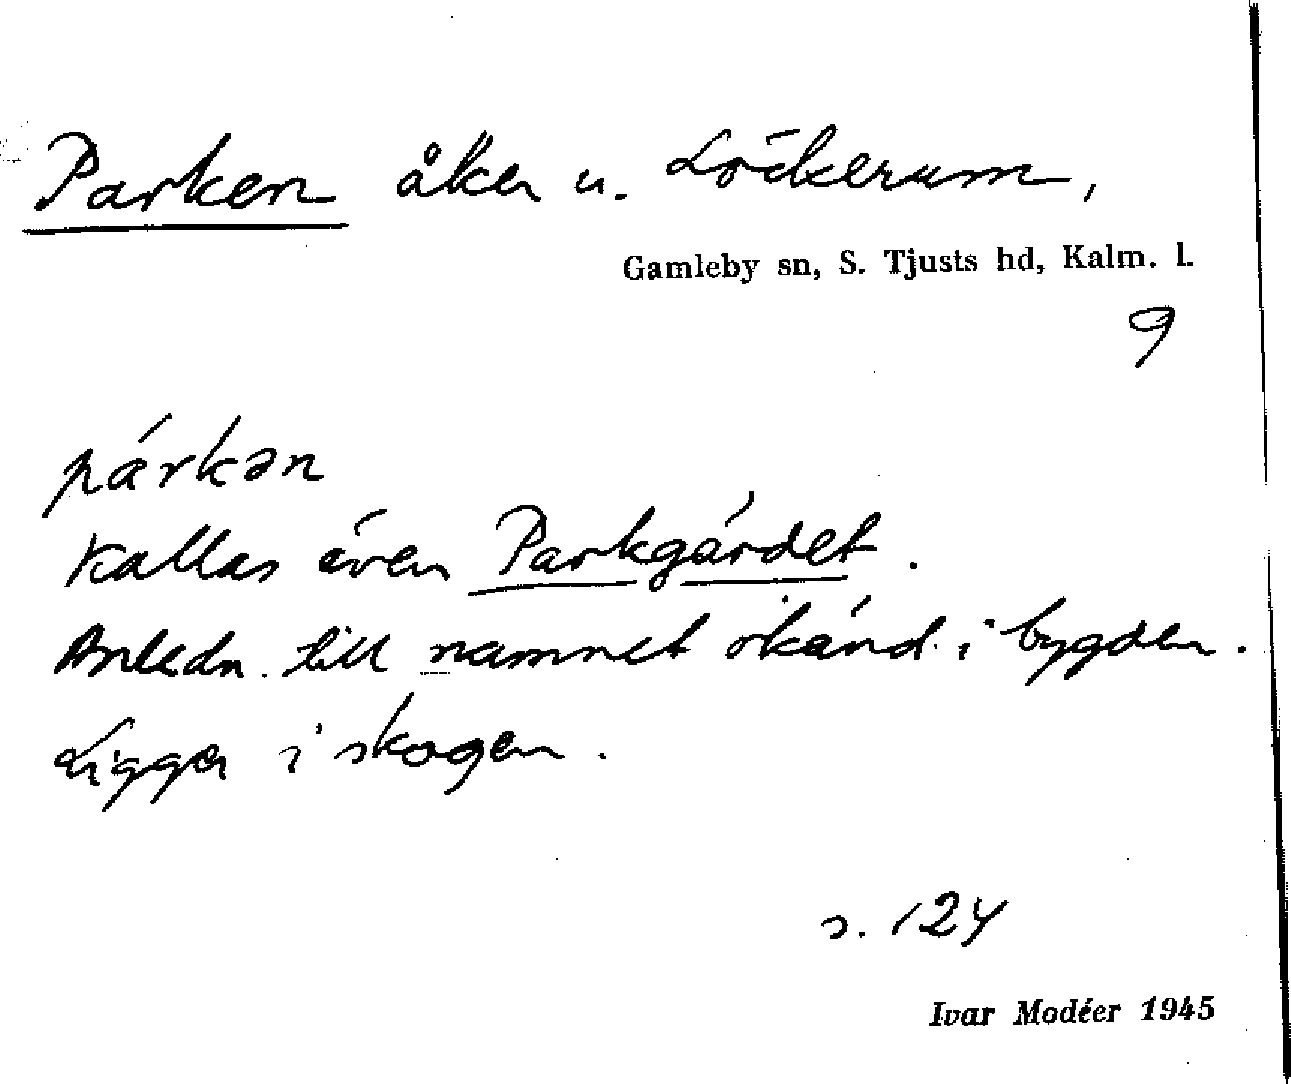 Parken åker u. Löckerum,
Gamleby sn, S. Tjusts hd, Kalm. l.
9
párkən
Kallas även Parkgärdet.
Anledn. till namnet okänd i bygden.
Ligger i skogen.
s. 124
Ivar Modéer 1945